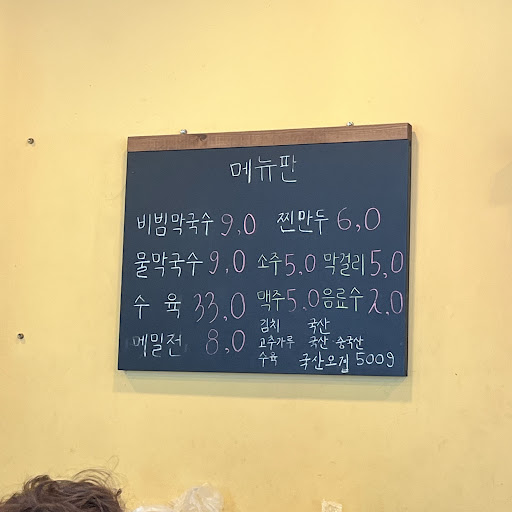 메뉴판
비빔막국수 9,0 찐만두 6,0
물막국수 9,0 소주 5,0 막걸리 5,0
수 육 33,0 맥주 5,0 음료수 2,0
메밀전 8,0
김치 국산
고추가루 국산·중국산
수육 국산오겹 500g